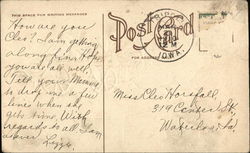 THIS SPACE FOR WRITING MESSAGES
Post Card
FOR ADDRESS
IOWA.
How are you
Cleo? I am getting
along fine. Hope
you are all well.
Tell your Mamma
to drop me a few
lines when she
gets time. With
regards to all I am
as ever
Lizzie.
Miss Cleo Horsfall
914 Center St.
Waterloo, Ia